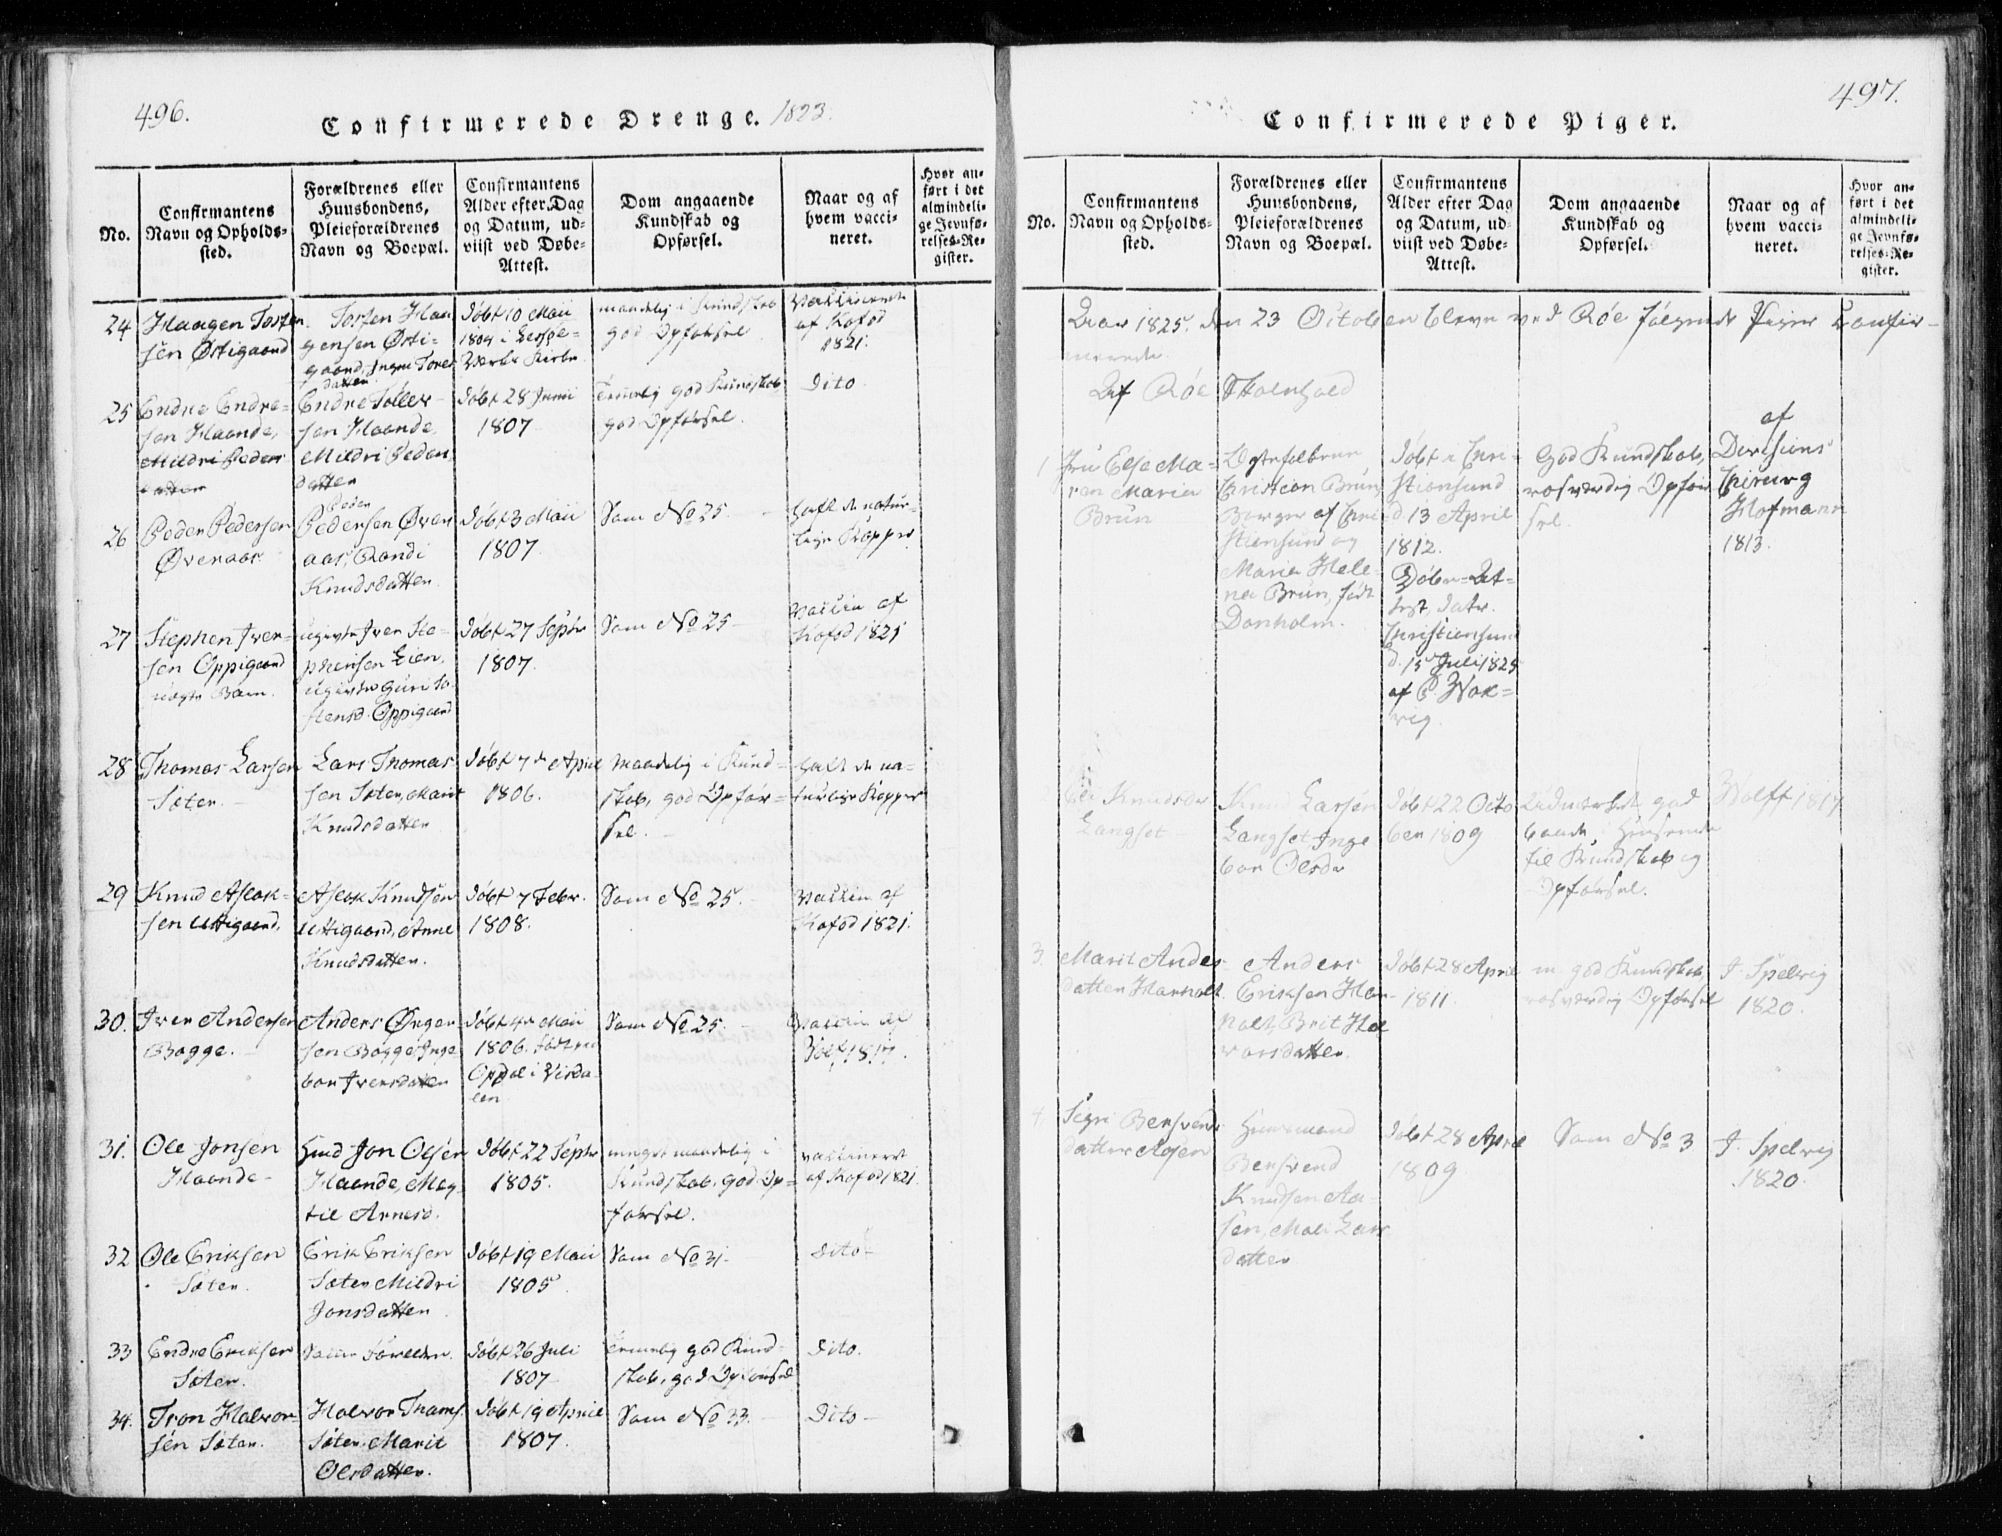 496.
Confirmerede Drenge. 1823.
No.
Confirmantens
Navn og Opholds-
sted.
Forældrenes eller
Huusbondens,
Pleieforældrenes
Navn og Boepæl.
Confirmantens
Alder efter Dag
og Datum, ud-
viist ved Døbe-
Attest.
Dom angaaende
Kundskab og
Opførsel.
Naar og af
hvem vacci-
neret.
Hvor an-
ført i det
almindeli-
ge Jevnfø-
relses-Re-
gister.
24
Haagen Tosten
sen Østigaard
Tosten Haa
gensen Østi-
gaard, Inger Tores
datter
Døbt 10 Maii
1809 i
Værks Kirke
maadelig i Kundskab
god Opførsel
Vaccineret
af Kofod
1821.
25
Endre Endre-
sen Haande,
Mildri Peders
datter
Endre Toller-
sen Haande,
Mildri Peders
datter
Døbt 28 Junii
1807.
Temmelig god Kundskab
god Opførsel.
Dito
26
Peder Pedersen
Øveraas
Peder
Pedersen Øver
aas, Randi
Knudsdatter
Døbt 3 Maii
1807.
Som No 25.
hafte de natur-
lige Kopper
27
Stephen Iver-
sen Oppigaard
uægte Barn.
ugivte Iver Ste-
phensen Lien,
ugivte Guri To-
stensd. Oppigaard
Døbt 27 Septbr
1807.
Som No 25-
Vaccin af
Kofod 1821
28
Thomas Larsen
Sæter.
Lars Thomas
sen Sæter, Marit
Knudsdatter
Døbt 7de April
1806.
Maadelig i Kund-
skab, god Opfør-
sel.
haft de na-
turlige Kopper
29
Knud Aslak-
sen Uttigaard.
Aslak Knudsen
Uttigaard, Anne
Knudsdatter.
Døbt 7 Febr.
1808.
Som No 25.
Vaccin af
Kofod 1821.
30.
Iver Andersen
Bagge.
Anders Ørger
sen Bagge Inge
bor Iversdatter
Døbt 4de Maii
1806. født paa
Opdal i
Som No 25.
Vaccin af
Wolf 1817.
31.
Ole Jonsen
Haande-
Huusmd Jon Olsen
Haande, Mag-
til Arnesd.
Døbt 22 Septbr
1805.
meget maadelig i
Kundskab, god Op-
førsel.
vaccineret
af Kofod 1821.
32
Ole Eriksen
Sæter.
Erik Eriksen
Sæter Mildri
Jonsdatter
Døbt 19 Maii
1805.
Som No 31.
Dito-
33
Endre Eriksen
Sæter.
Samme Forældre.
Døbt 26 Juli
1807
Temmelig god Kund-
skab, god Opførsel
Dito.
34.
Tron Halvor
sen Sæter.
Halvor Trams.
Sæter Marit
Olsdatter.
Døbt 19 April
1807.
Som No 33.
Dito-
497.
Confirmerede Piger.
No.
Confirmantens
Navn og Opholds-
sted.
Forældrenes eller
Huusbondens,
Pleieforældrenes
Navn og Boepæl.
Confirmantens
Alder efter Dag
og Datum, ud-
viist ved Døbe-
Attest.
Dom angaaende
Kundskab og
Opførsel.
Naar og af
hvem vacci-
neret.
Hvor an-
ført i det
almindeli-
ge Jevnfø-
relses-Re-
gister.
Aar 1825. den 23 October bleve ved Røe følgende Piger Confir-
merede.
Af Røe Skolehold
1
Else Ma-
ren Maria
Brun
Christian Brun,
Borger af Chri-
stiansund og
Maria Hele-
na Brun, født
Donholm.
Døbt i Chri-
stiansund
d. 13 April
1812.
Døbe-At-
test, dat.
Christiansund
d. 15 Juli 1825
af P.
God Kundskab,
rosværdig Opfør
sel.
af
Divisions
Chirurg
Hofmann
1813.
Knudsdr
Langset
Knud Larsen
Langset Inge
bor Olsdr
Døbt 22 Octo
ber 1809
Udmærket god
baade i Henseende
til Kundskab og
Opførsel.
Wolff 1817
3.
Marit Anders
datter Harholt.
Anders
Eriksen Har-
holt, Brit Hal
vorsdatter.
Døbt 28 April
1811.
m. god Kundskab
rosværdig Opførsel
J. Spelvig
1820.
4.
Segri Bersvens
datter Aasen
Huusmand
Bersvend
Knudsen Aa-
sen, Mali Lars
datter
Døbt 28 April
1809
Som No 3
J. Spelvig
1820.